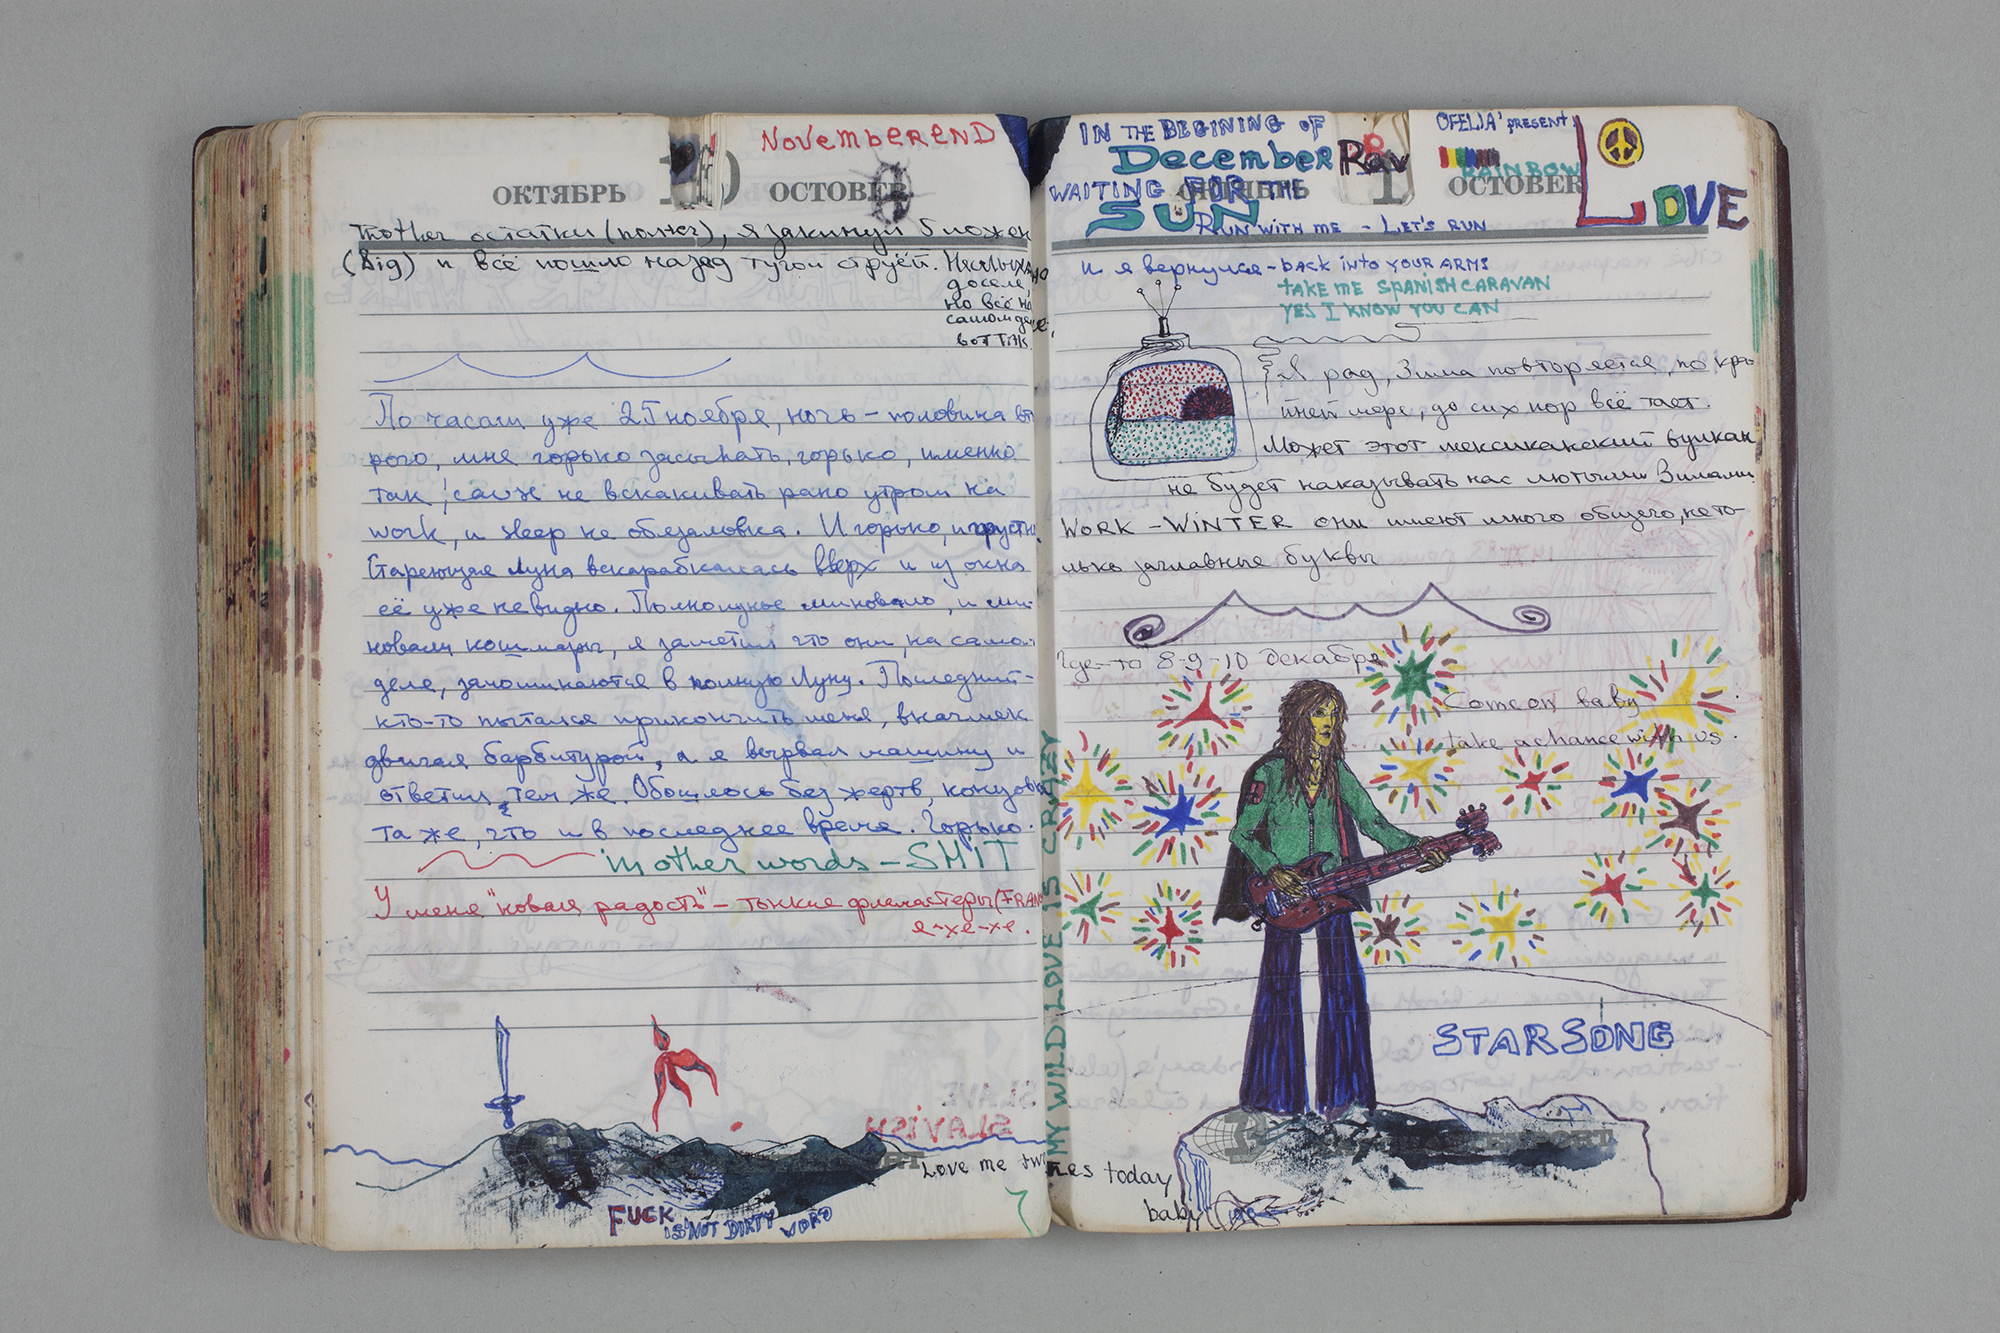 NOVEMBEREND
ОКТЯБРЬ 10 OCTOBER
mother остатки (полтер), я закинул 5 ложек
(Big) и всё пошло назад тугой струёй. Неслыхано
доселе,
но всё на
самом деле,
вот так.
По часам уже 25 ноября, ночь – половина вто
рого, мне горько засыпать, горько, именно
так, не вскакивать рано утром на
work, и sleep не обязаловка. И горько, и грустно.
Стареющая Луна вскарабкалась вверх и из окна
её уже не видно. Полнолунье миновало, и ми-
новали кошмары, я заметил что они, на самом
деле, зачинаются в полную Луну. Последний –
кто-то пытался прикончить меня, вкачмек
двигая барбитурой, а я вырвал машину и
ответил тем же. Обошлось без жертв, концовка
та же, что и в последнее время. Горько.
in other words – SHIT
У меня "новая радость" – тонкие фломастеры (FRAN
е-хе-хе.
SLAVE
SLAVISH
Love me two times today
baby
FUCK
IS NOT DIRTY WORD
IN THE BEGINING OF
December
WAITING FOR THE
SUN
OFELIA' PRESENT
RAINBOW
LOVE
1 OCTOBER
RUN WITH ME – LET'S RUN
и я вернулся – BACK INTO YOUR ARMS
TAKE ME SPANISH CARAVAN
YES I KNOW YOU CAN
Я рад, Зима повторяется, по кра-
йней мере, до сих пор всё тает.
Может этот мексиканский вулкан
не будет наказывать нас лютыми Зимами
WORK – WINTER они имеют много общего, не то-
лько заглавные буквы
Где-то 8-9-10 декабря
Come on baby
take a chance with us
MY WILD LOVE IS CRAZY
STARSONG